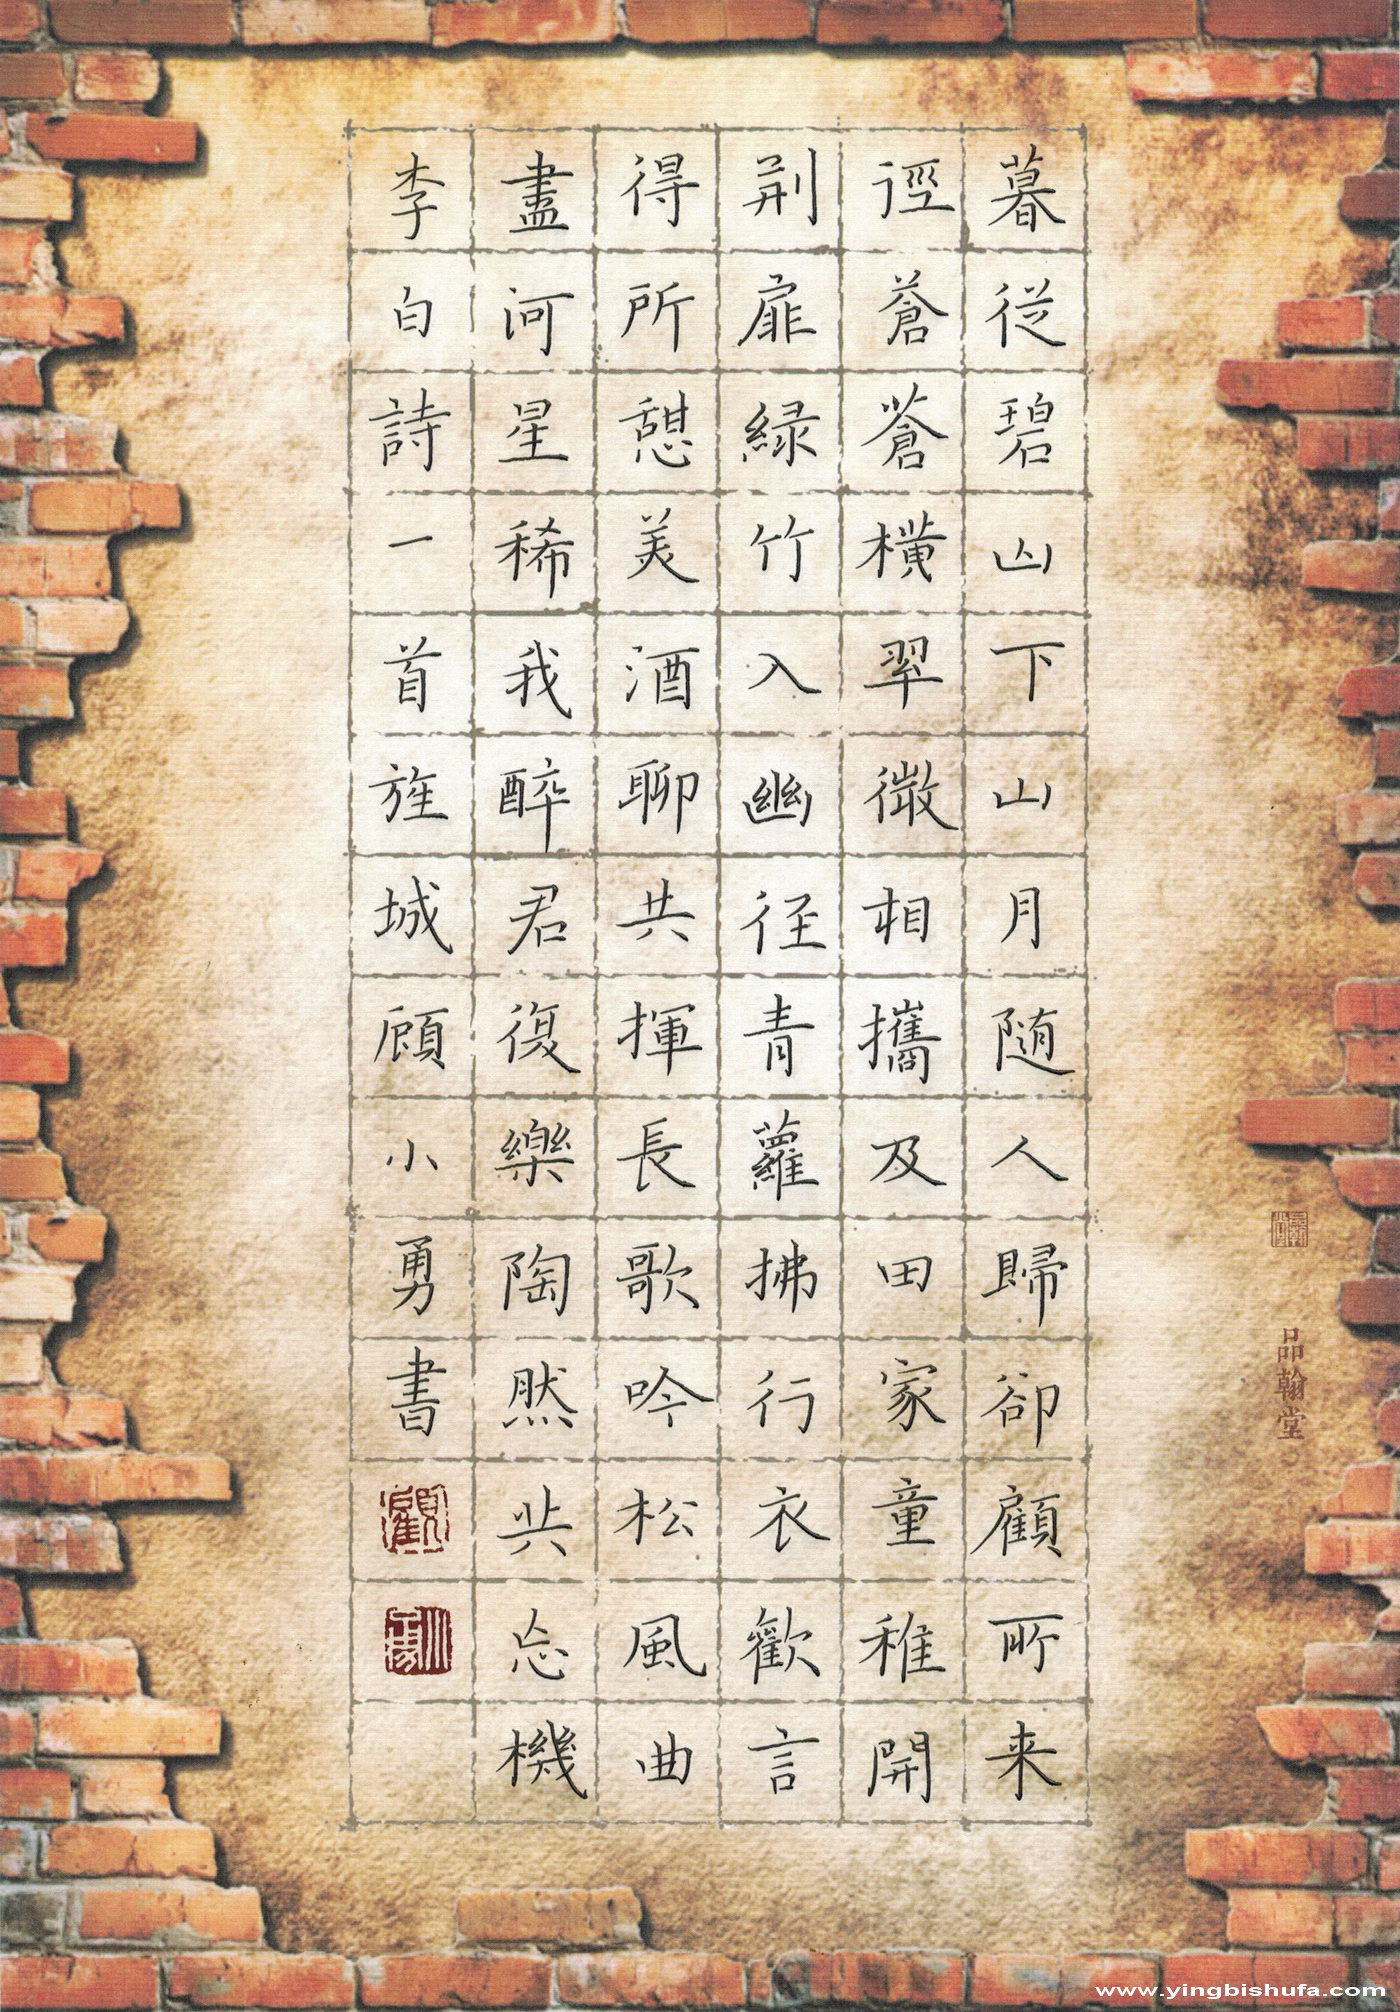 暮従碧山下山月随人歸卻顧所来
徑蒼蒼横翠微相攜及田家童稚開
荆扉緑竹入幽径青蘿拂行衣歡言
得所憩美酒聊共揮長歌吟松風曲
盡河星稀我醉君復樂陶然共忘機
李白詩一首旌城顧小勇書
顧
小勇
品翰堂
www.yingbishufa.com